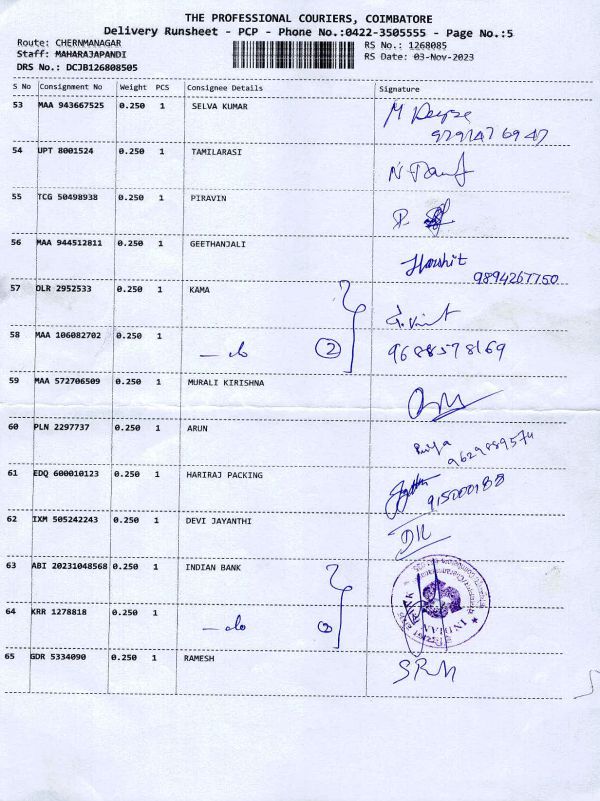 THE PROFESSIONAL COURIERS, COIMBATORE
Delivery Runsheet - PCP - Phone No.:0422-3505555 - Page No.:5
Route: CHERNMANAGAR
Staff: MAHARAJAPANDI
DRS No.: DCJB126808505
RS No.: 1268085
RS Date: 03-Nov-2023
S No Consignment No Weight PCS Consignee Details Signature
53 MAA 943667525 0.250 1 SELVA KUMAR
54 UPT 8001524 0.250 1 TAMILARASI
55 TCG 50498938 0.250 1 PIRAVIN
56 MAA 944512811 0.250 1 GEETHANJALI Harshit
9894267750
57 OLR 2952533 0.250 1 KAMA
58 MAA 106082702 0.250 1 — do 2 9688578169
59 MAA 572706509 0.250 1 MURALI KIRISHNA
60 PLN 2297737 0.250 1 ARUN Priya
9629889574
61 EDQ 600010123 0.250 1 HARIRAJ PACKING
62 IXM 505242243 0.250 1 DEVI JAYANTHI
63 ABI 20231048568 0.250 1 INDIAN BANK
64 KRR 1278818 0.250 1 — do INDIAN
65 GDR 5334090 0.250 1 RAMESH SRM